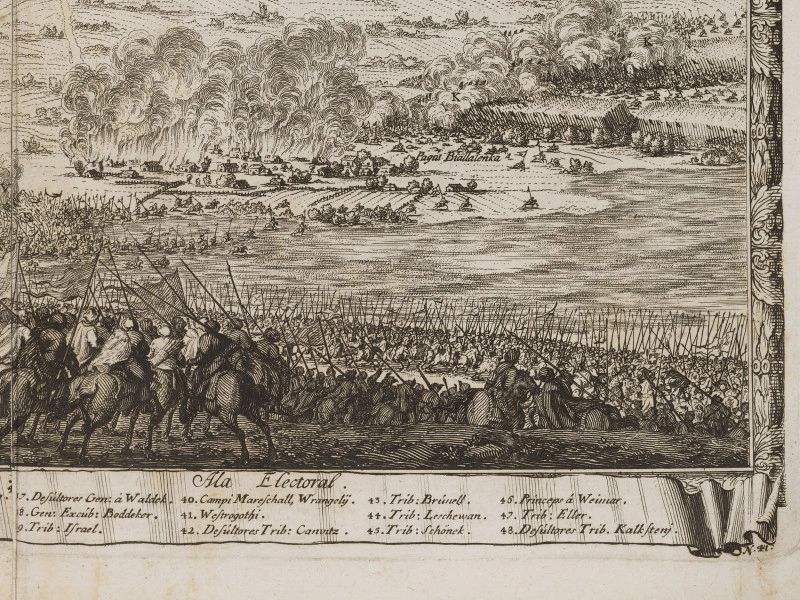 K
K
Pagus Biallalenka
Ala Electoral.
37. Desültores Gen: á Waldek.
38. Gen: Excüb: Boddeker.
39. Trib: Israel.
40. Campi Mareschall, Wrangelij.
41. Westrogothi.
42. Desültores Trib: Canvitz.
43. Trib: Brünell.
44. Trib: Leschewan.
45. Trib: Schönek.
46. Princeps á Weimar.
47. Trib: Eller.
48. Desültores Trib. Kalkstenj.
N. 41.